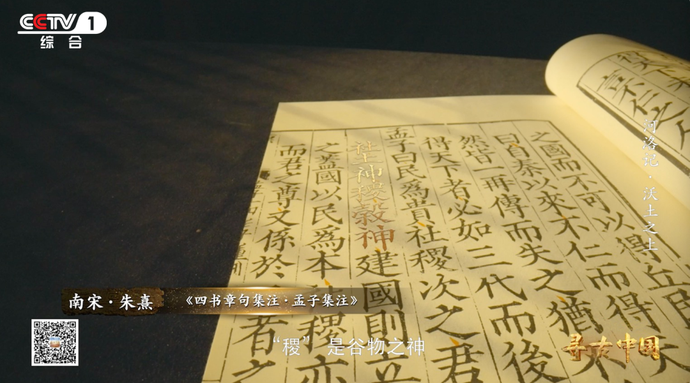 CCTV 1
综合
河洛记·沃土之上
之國而不可以得丘民
曰自秦以來不仁而得
然皆一再傳而失之猶
得天下者必如三代而後
孟子曰民為貴社稷次之君
社神稷穀神建國則立
之蓋國以民為本社稷亦
而君之尊又係於二者之
南宋·朱熹
《四书章句集注·孟子集注》
“稷”是谷物之神
寻古中国